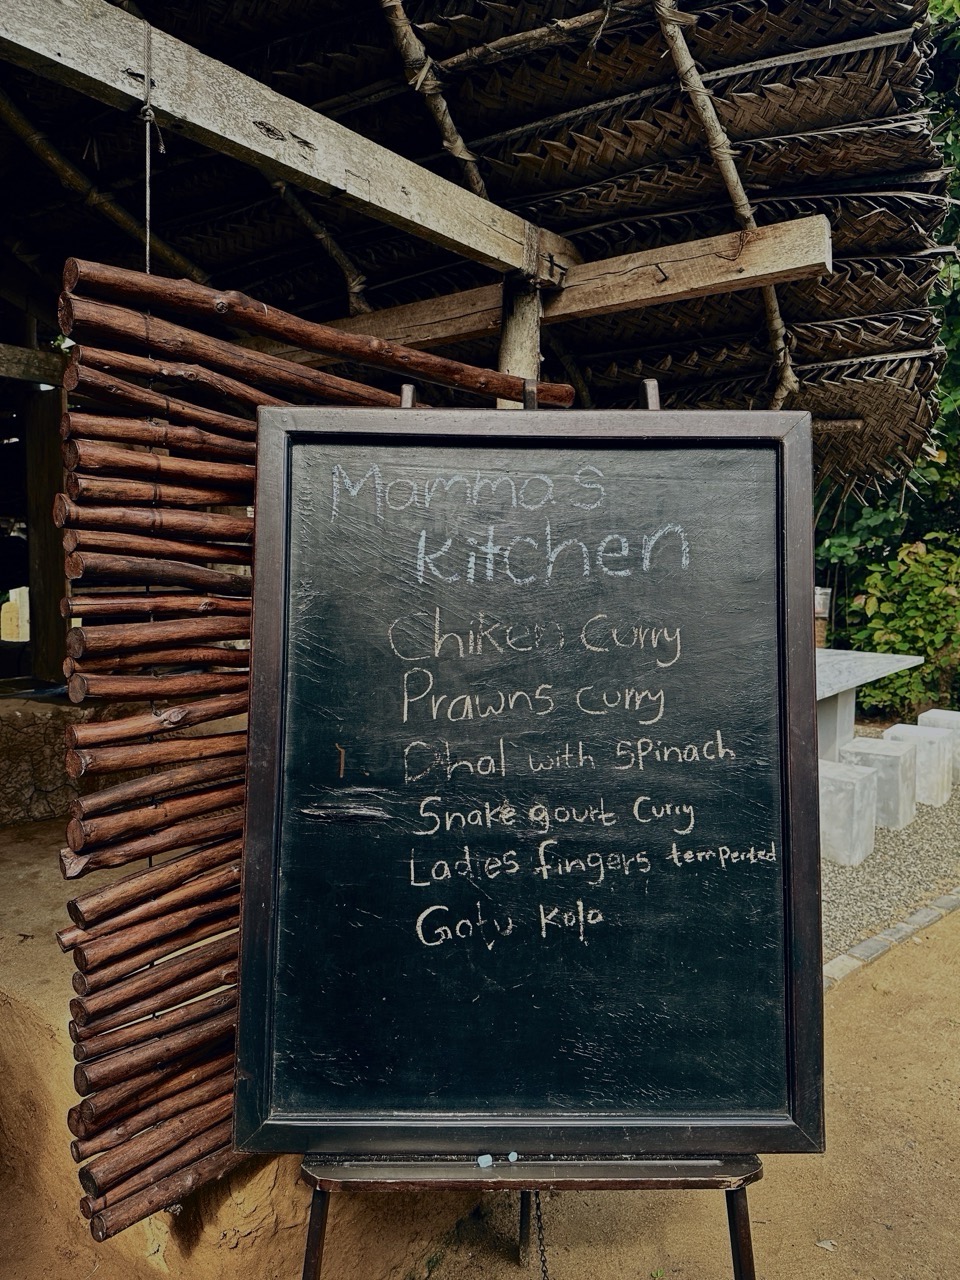 Mamma's
Kitchen
Chiken Curry
Prawns curry
Dhal with spinach
Snake gourt Curry
Ladies fingers temperted
Gotu Kola